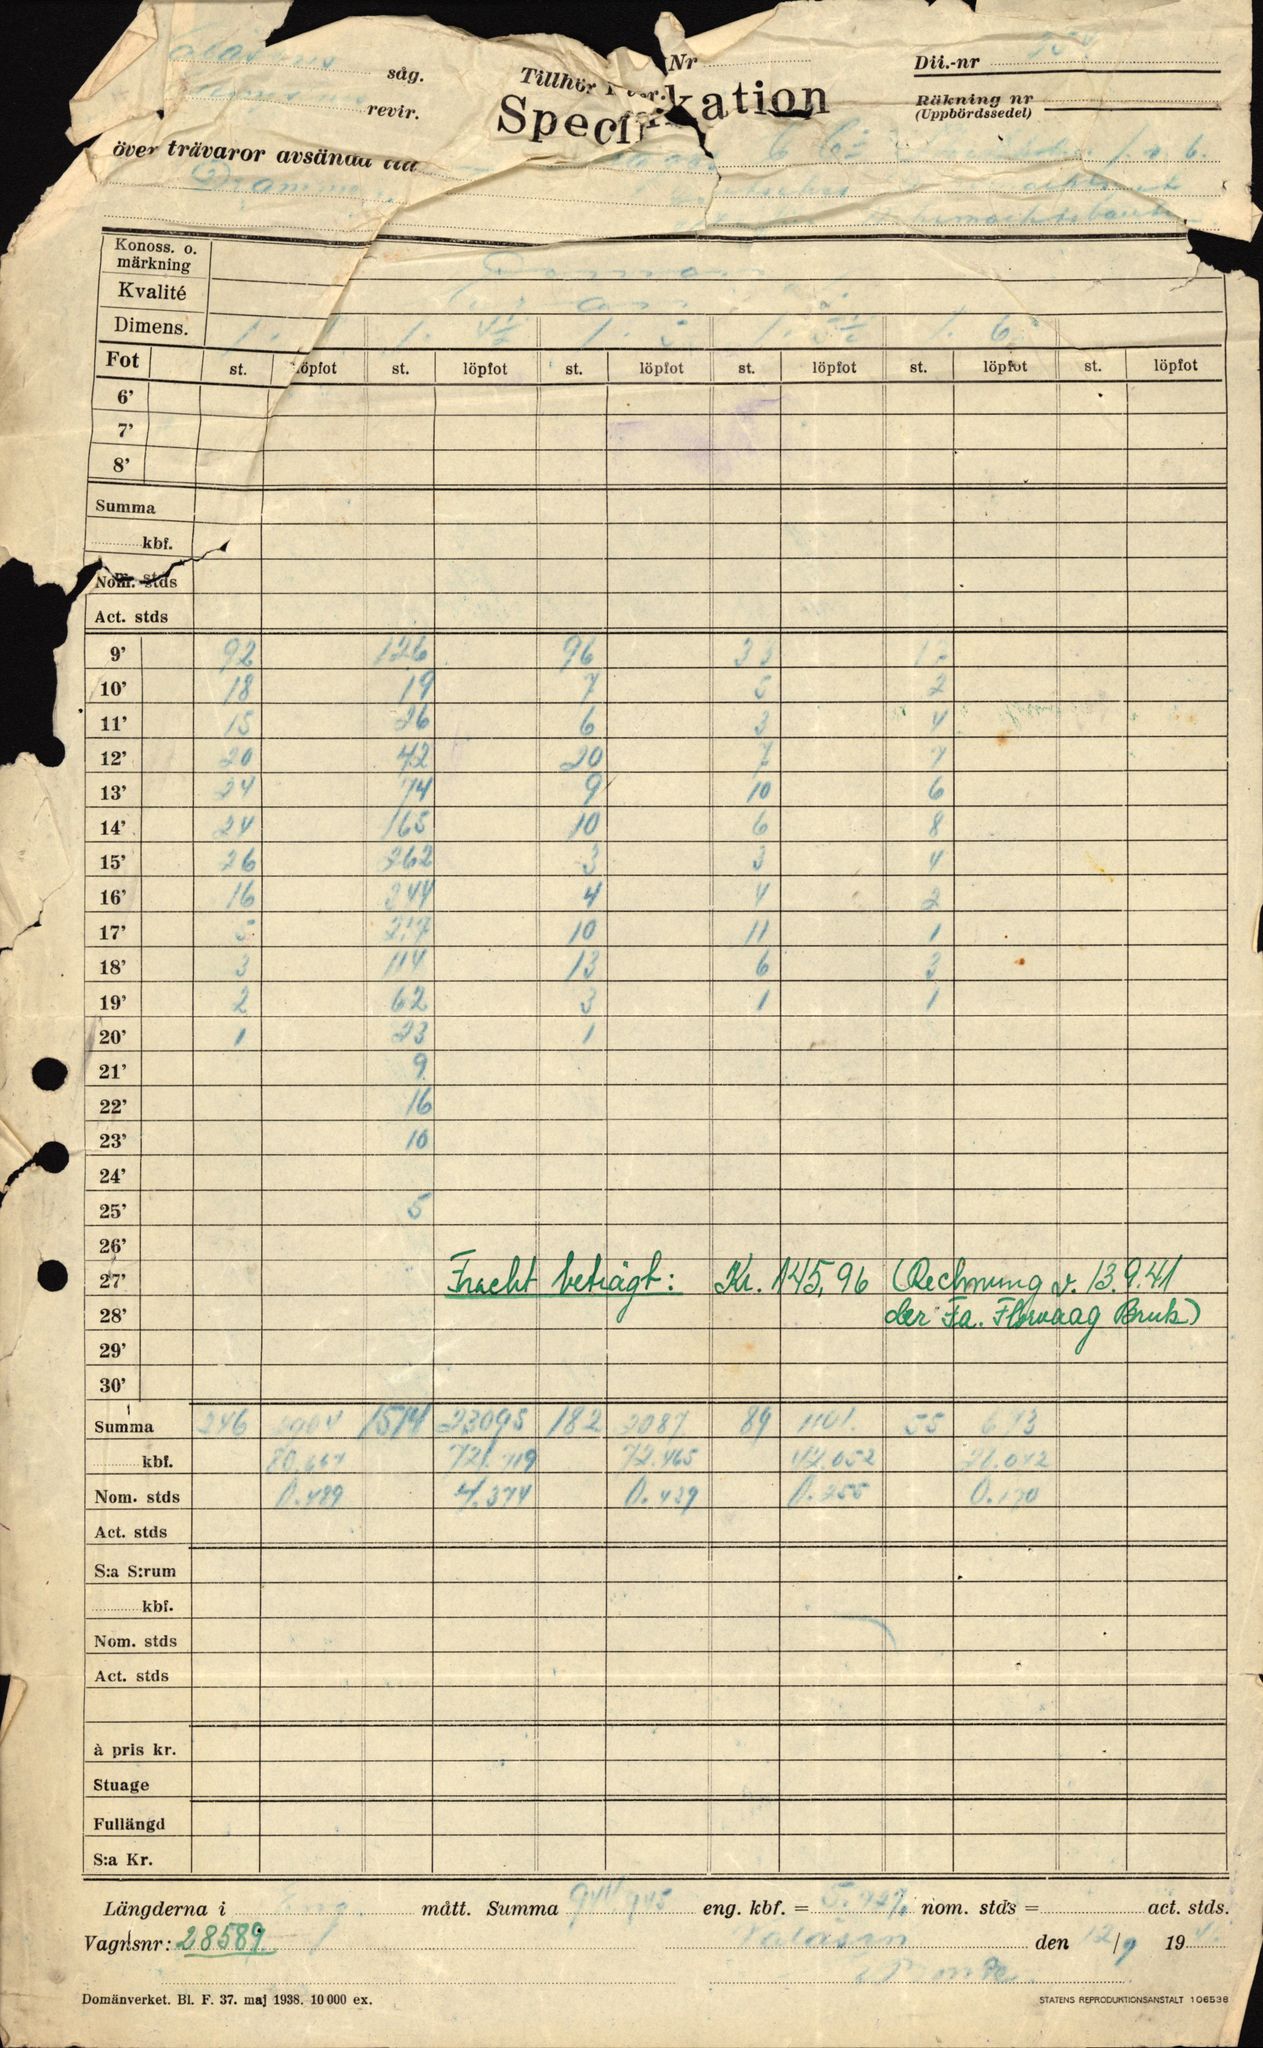 såg. Tillhör Nr Dii.-nr
revir. Räkning nr
(Uppbördssedel)
Specifikation
över trävaror avsända till
Drammen
Konoss. o.
märkning
Kvalité
Dimens. 1. 1. 4½ 1. 5 1. 5½ 1. 6
Fot st. löpfot st. löpfot st. löpfot st. löpfot st. löpfot st. löpfot
6'
7'
8'
Summa
kbf.
Nom. stds
Act. stds
9' 92 126 96 33
10' 18 19 7 5 2
11' 15 26 6 3 4
12' 20 42 20 7 7
13' 24 74 9 10 6
14' 24 165 10 6 8
15' 26 262 3 3 4
16' 16 344 4 4 2
17' 5 217 10 11 1
18' 3 114 13 6 3
19' 2 62 3 1 1
20' 1 23 1
21' 9
22' 16
23' 10
24'
25' 5
26'
27' Fracht beträgt: Kr. 145,96 (Rechnung v. 13.9.41
28' der Fa. Florvaag Bruk)
29'
30'
Summa 246 2904 1514 23095 182 2087 89 1101. 55 673
kbf. 80.667 721.719 72.465 42.052
Nom. stds 0.489 4.374 0.439 0.255 0.170
Act. stds
S:a S:rum
kbf.
Nom. stds
Act. stds
à pris kr.
Stuage
Fullängd
S:a Kr.
Längderna i Eng. mått. Summa 944.945 eng. kbf. = 5.727 nom. stds = act. stds.
Vagnsnr: 28589 Valåsen den 12/9 19 41
Domänverket. Bl. F. 37. maj 1938. 10 000 ex. STATENS REPRODUKTIONSANSTALT 106538